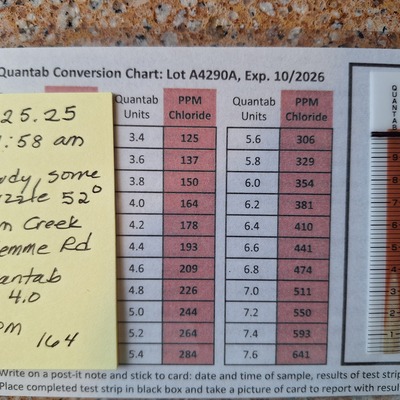 Quantab Conversion Chart: Lot A4290A, Exp. 10/2026
25.25
:58 am
some
52°
Creek
Rd
4.0
164
Quantab Units PPM Chloride Quantab Units PPM Chloride
3.4 125 5.6 306
3.6 137 5.8 329
3.8 150 6.0 354
4.0 164 6.2 381
4.2 178 6.4 410
4.4 193 6.6 441
4.6 209 6.8 474
4.8 226 7.0 511
5.0 244 7.2 550
5.2 264 7.4 593
5.4 284 7.6 641
QUANTAB
9
8
7
6
5
4
3
2
1
Write on a post-it note and stick to card: date and time of sample, results of test strip
Place completed test strip in black box and take a picture of card to report with resul